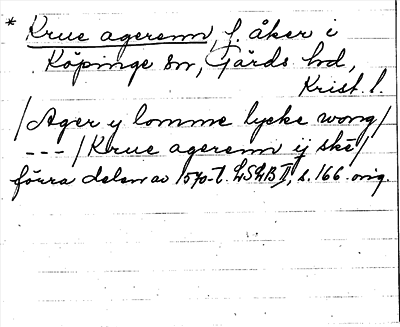 * Krue agerenn, f. åker i
Köpinge sn, Gärds hd,
Krist. l.
/Ager y lomme lycke wong/
--- /Krue agerenn ij skē/
förra delen av 1570-t. LSÄB II, s. 166 orig.